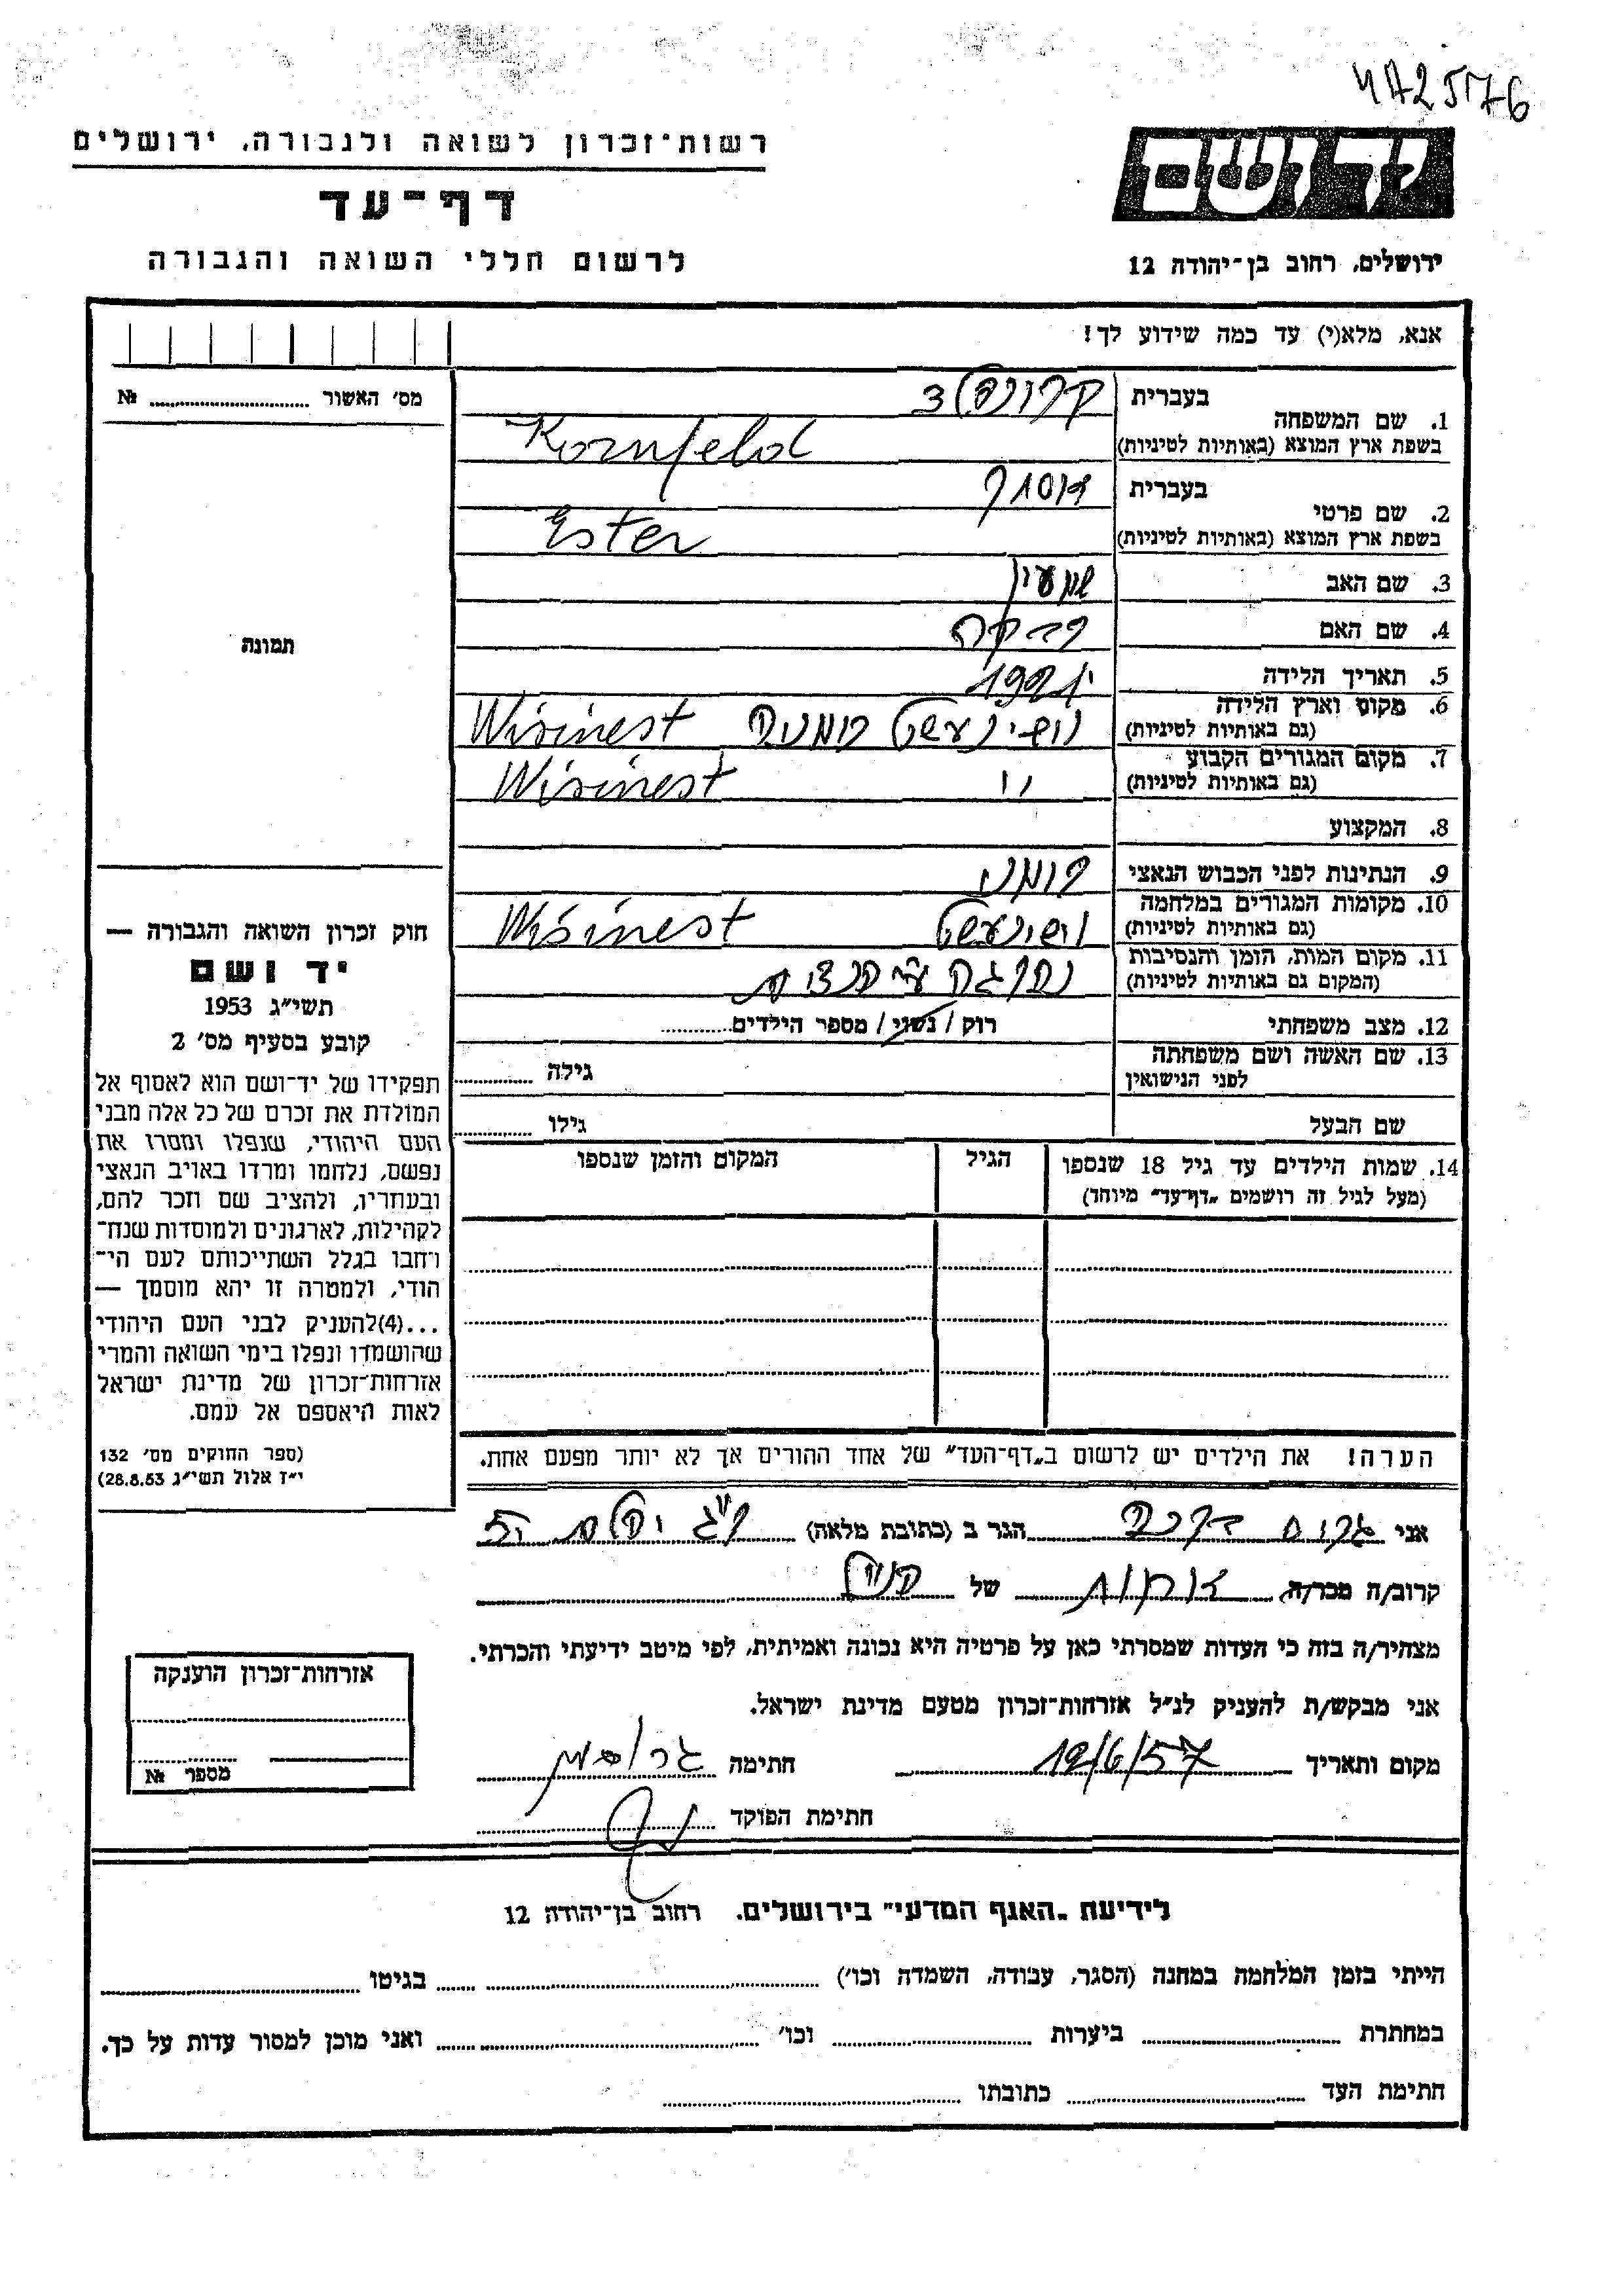 472576
רשות־זכרון לשואה ולגבורה, ירושלים
דף־עד
לרשום חללי השואה והגבורה
יד ושם
ירושלים, רחוב בן־יהודה 12
אנא, מלא(י) עד כמה שידוע לך!
מס׳ האשור №
תמונה
1. שם המשפחה בעברית
בשפת ארץ המוצא (באותיות לטיניות) Kornfeld
2. שם פרטי בעברית אסתר
בשפת ארץ המוצא (באותיות לטיניות) Ester
3. שם האב שמעון
4. שם האם רבקה
5. תאריך הלידה 1921
6. מקום וארץ הלידה (גם באותיות לטיניות) רומניה Wisinest
7. מקום המגורים הקבוע (גם באותיות לטיניות) " Wisinest
8. המקצוע
9. הנתינות לפני הכבוש הנאצי רומני
10. מקומות המגורים במלחמה (גם באותיות לטיניות) Wisinest
11. מקום המות, הזמן והנסיבות (המקום גם באותיות לטיניות)
12. מצב משפחתי רוק / נשוי / מספר הילדים
13. שם האשה ושם משפחתה לפני הנישואין גילה
שם הבעל גילו
14. שמות הילדים עד גיל 18 שנספו (מעל לגיל זה רושמים „דף־עד״ מיוחד) הגיל המקום והזמן שנספו
הערה! את הילדים יש לרשום ב„דף־העד״ של אחד ההורים אך לא יותר מפעם אחת.
חוק זכרון השואה והגבורה —
יד ושם
תשי״ג 1953
קובע בסעיף מס׳ 2
תפקידו של יד־ושם הוא לאסוף אל
המולדת את זכרם של כל אלה מבני
העם היהודי, שנפלו ומסרו את
נפשם, נלחמו ומרדו באויב הנאצי
ובעוזריו, ולהציב שם וזכר להם,
לקהילות, לארגונים ולמוסדות שנח־
רחבו בגלל השתייכותם לעם הי־
הודי, ולמטרה זו יהא מוסמך —
...(4)להעניק לבני העם היהודי
שהושמדו ונפלו בימי השואה והמרי
אזרחות־זכרון של מדינת ישראל
לאות היאספם אל עמם.
(ספר החוקים מס׳ 132
י״ז אלול תשי״ג 28.8.53)
אני הגר ב (כתובת מלאה)
קרוב/ה מכר/ה אחות של
מצהיר/ה בזה כי העדות שמסרתי כאן על פרטיה היא נכונה ואמיתית, לפי מיטב ידיעתי והכרתי.
אני מבקש/ת להעניק לנ״ל אזרחות־זכרון מטעם מדינת ישראל.
מקום ותאריך 12/6/57 חתימה
חתימת הפוקד
אזרחות־זכרון הוענקה
מספר №
לידיעת „האגף המדעי״ בירושלים, רחוב בן־יהודה 12
הייתי בזמן המלחמה במחנה (הסגר, עבודה, השמדה וכו׳) בגיטו
במחתרת ביערות וכו׳ ואני מוכן למסור עדות על כך.
חתימת העד כתובתו